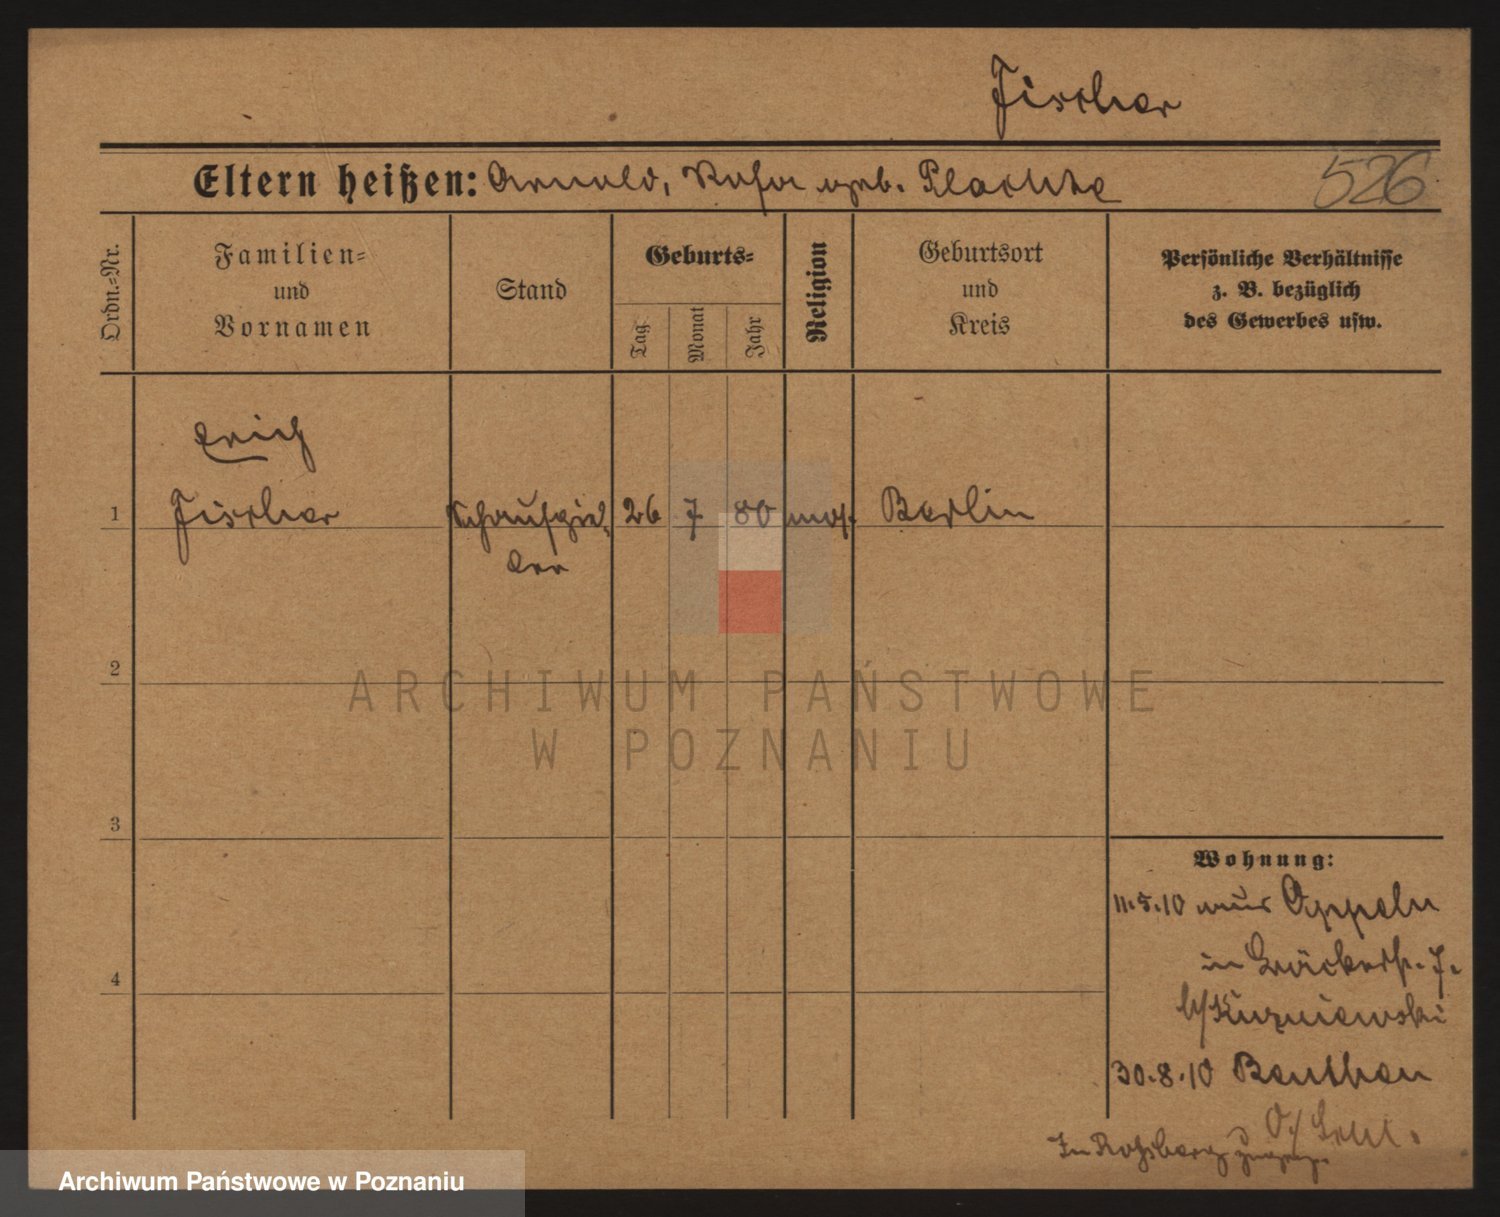 Fischer
Eltern heißen: Arnold, Rosa geb. Plachte
526
Ordn.-Nr.
Familien-
und
Vornamen
Stand
Geburts-
Tag
Monat
Jahr
Religion
Geburtsort
und
Kreis
Persönliche Verhältnisse
z. B. bezüglich
des Gewerbes usw.
Erich
1 Fischer Schauspie- 26 7 80 mos. Berlin
ler
2
3
4
Wohnung:
11.5.10 aus Oppeln
in Bäckerstr. 7.
b/Kuzniewski
30.8.10 Beuthen
O/Schl.
In Roßberg
ARCHIWUM PAŃSTWOWE
W POZNANIU
Archiwum Państwowe w Poznaniu